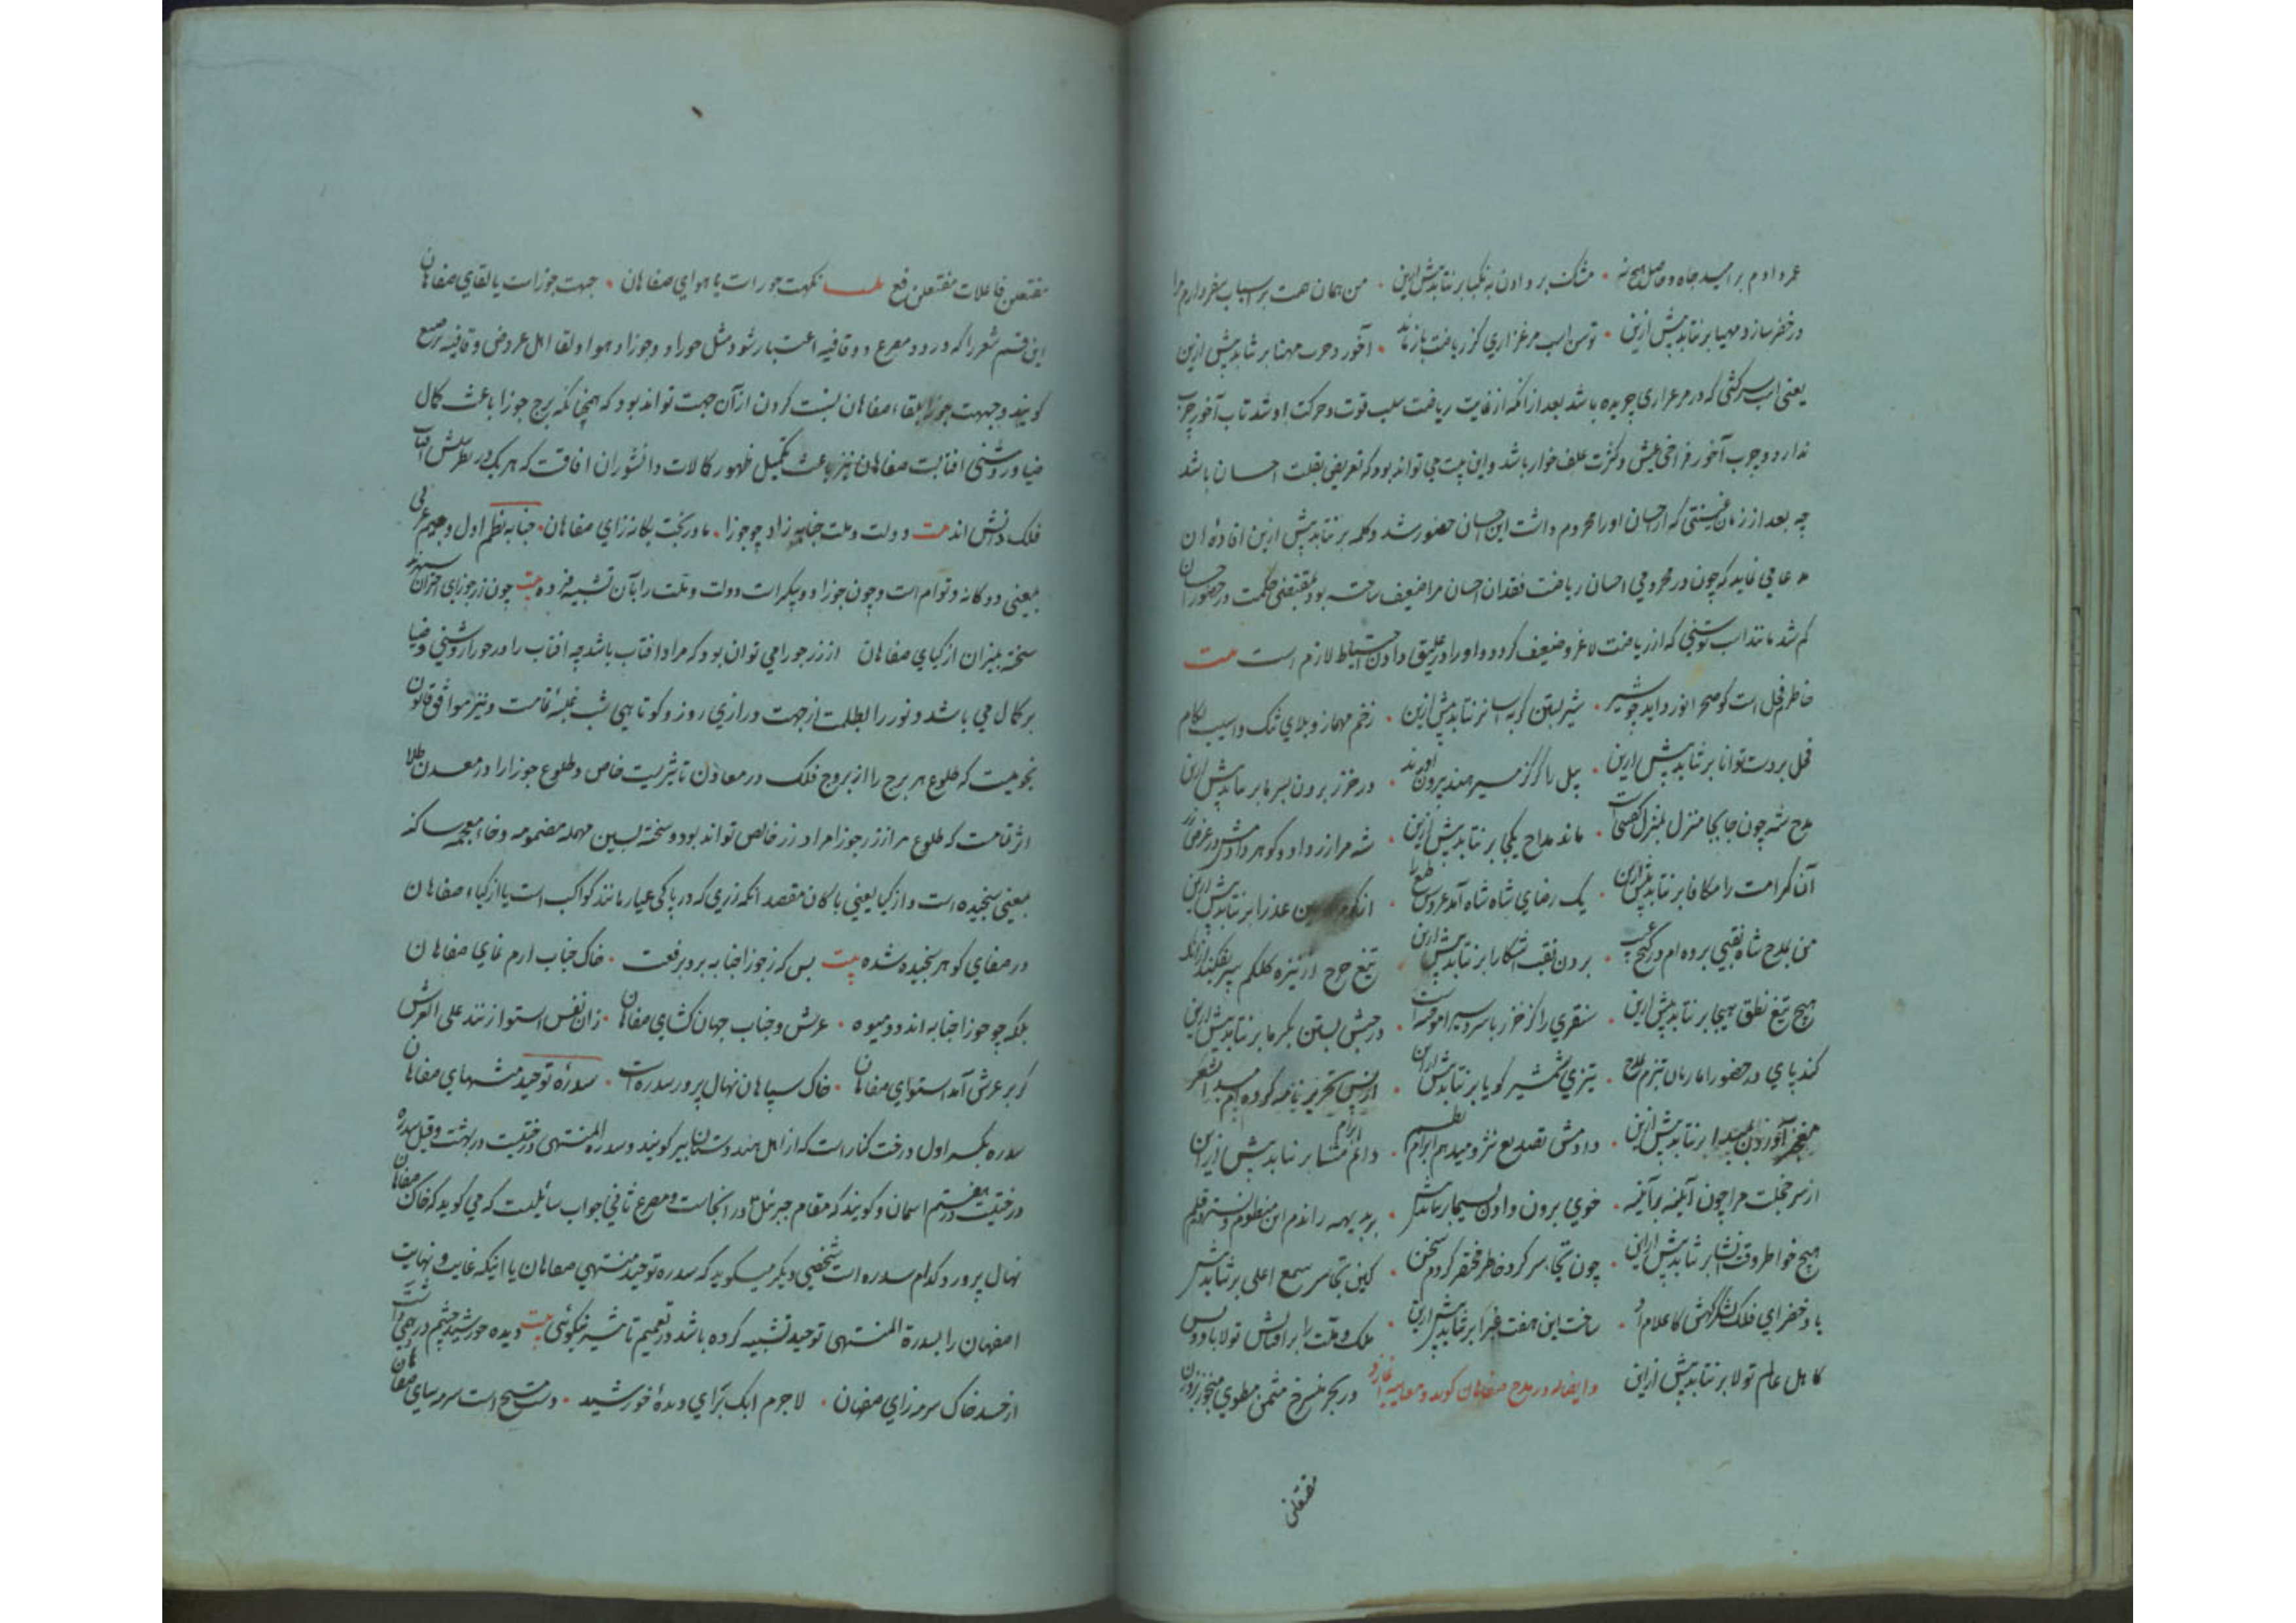 عمر دادم بر امید جاه و حاصل هیچ نه • مشک بر دادن به نکبا بر نتابد پیش ازین • من همان همت بر اسباب سفر دارم مرا
در خضر ساز مهیا بر نتابد پیش ازین • توسن اسب مرغزاری کز ریاضت باز ماند • آخور و حرب مهنا بر نتابد پیش ازین
یعنی اسب سرکشی که در مرغزاری چریده باشد بعد از آنکه از غایت ریاضت سلب قوت و حرکت او شد تاب آخور چرب
ندارد و چرب آخور فراخی عیش و کثرت علف خوار باشد و این بیت می تواند بود که تعریض بقلت احسان باشد
چه بعد از زمان که از احسان او را محروم داشت این احسان حضور شد و کلمه بر نتابد پیش ازین افاده ان
مدعا می نماید که چون در محرومی احسان ریاضت فقدان احسان مرا ضعیف ساخته بود بمقتضی حکمت در حضور احسان
کم شد مانند اسب توسنی که از ریاضت لاغر و ضعیف کردد و او را در علیق دادن احتیاط لازم است بیت
خاطرم فحل است کو صحرا نورد آید چو شیر • شیر بستن کربه آسا بر نتابد پیش ازین • زخم مهماز و بلای تنک و آسیب لکام
فحل بر دست توانا بر نتابد پیش ازین • پیل را کز کز سیر هند بیرون آورند • در خزر بردن بسرما بر نتابد پیش ازین
مدح شه چون جابجا منزل بمنزل کفتنی است • ماندن مداح یکجا بر نتابد پیش ازین • شه مرا زر داد و کوهر دادمش در عرض زر
آن کرامت را مکافا بر نتابد پیش ازین • یک رضای شاه شاه آمد عروس طبع را • از کرم عذرا بر نتابد پیش ازین
من بمدح شاه نقبی برده ام در کنج غیب • بردن نقب آشکارا بر نتابد پیش ازین • تیغ چرخ از نیزه کلکم سپر بفکند از آنکه
هیچ تیغ نطق هیجا بر نتابد پیش ازین • سنقری را کز خزر با سردسیر آموخته است • در حبش بستن بکرما بر نتابد پیش ازین
کند پای در حضور اما زبان تیزم بمدح • تیزی شمشیر کویا بر نتابد پیش ازین
معجز آوردن بمبدا بر نتابد پیش ازین • دادمش تصدیع نثر و میدهم ابرام نظم • دانم ابرام مثنا بر نتابد پیش ازین
از سر خجلت مرا چون آینه بر آینه • خوی برون دادن بسیما بر نتابد پیش • بر بدیهه راندم این منظوم و بستردم قلم
هیچ خواطر وقت انشا بر نتابد پیش ازین • چون تجاسر کرد خاطر مختصر کردم سخن • کین تجاسر سمع اعلی بر نتابد پیش
باد خضرای فلک لشکرکهش کاعلام او • ساحت این هفت غبرا بر نتابد پیش ازین • ملک و ملت را بر اقبالش تولا باد و بس
کاهل عالم تولا بر نتابد پیش ازین وایضا له در مدح صفاهان کوید در بحر منسرح مثمن مطوی منحور بروزن
مفتعلن
مفتعلن فاعلات مفتعلن فع بیت نکهت حور است یا هوای صفاهان • جبهت جوزاست یا لقای صفاهان
این قسم شعر را که در دو مصرع دو قافیه اعتبار شود مثل حورا و جوزا و هوا و لقا اهل عروض و قافیه ترصیع
کویند و جبهت جوزا بلقاء صفاهان نسبت کردن از آن جهت تواند بود که همچنانکه برج جوزا باعث کمال
ضیا و روشنی افتابست صفاهان نیز باعث تکمیل ظهور کمالات دانشوران افاقست که هر یک در نظر بینش آفتاب
فلک دانش اند بیت دولت و ملت جنابه زاد چو جوزا • مادر بخت یکانه زای صفاهان • جنابه بفتح اول و جیم عربی
بمعنی دوکانه و توام است و چون جوزا دو پیکر است دولت و ملت را بآن تشبیه فرموده بیت چون زر جوزای اختران سپهرند
سخته بمیزان از کیای صفاهان از زر جوزا می توان بود که مراد افتاب باشد چه افتاب را در جوزا روشنی و ضیا
بر کمال می باشد و نور را بظلمت از جهت درازی روز و کوتاهی شب غلبهٔ تمامست و نیز موافق قانون
نجومیست که طلوع هر برج را از بروج فلک در معادن تاثیریست خاص و طلوع جوزا را در معدن طلا
اثر تمامست که طلوع مر از زر جوزا مراد زر خالص تواند بود و سخته بسین مهمله مضمومه و خاء معجمه ساکنه
بمعنی سنجیده است و از کیا یعنی پاکان مقصد آنکه زری که در پاکی عیار مانند کواکب است یا از کیاء صفاهان
در صفای کوهر سنجیده شده بیت بس که ز جوزا جنابه برد برفعت • خاک جناب ارم نمای صفاهان
بلکه چو جوزا جنابه اند و دو میوه • عرش و جناب جهان کشای صفاهان • زان نفس استوا زنند علی العرش
کز بر عرش آمد استوای صفاهان • خاک سپاهان نهال پرور سدره است • سدرهٔ توحید منتهای صفاهان
سدره بکسر اول درخت کنار است که از اهل هندوستان بیر کویند و سدرة المنتهی درختیست در بهشت و قیل سدره
درختیست در هفتم اسمان و کویند که مقام جبرئیل در انجاست و مصرع ثانی جواب سائیلست که می کوید که خاک صفاهان
نهال پرور کدام سدره است شخصی دیکر میکوید که سدره توحید منتهی صفاهان یا اینکه غایت و نهایت
اصفهان را بسدرة المنتهی توحید تشبیه کرده باشد در تعمیم تاثیر نیکوئی بیت دیده خورشید چشم درد همی داشت
از حسد خاک سرمه زای صفاهان • لاجرم اینک برای دیدهٔ خورشید • دست مسیح است سرمه سای صفاهان